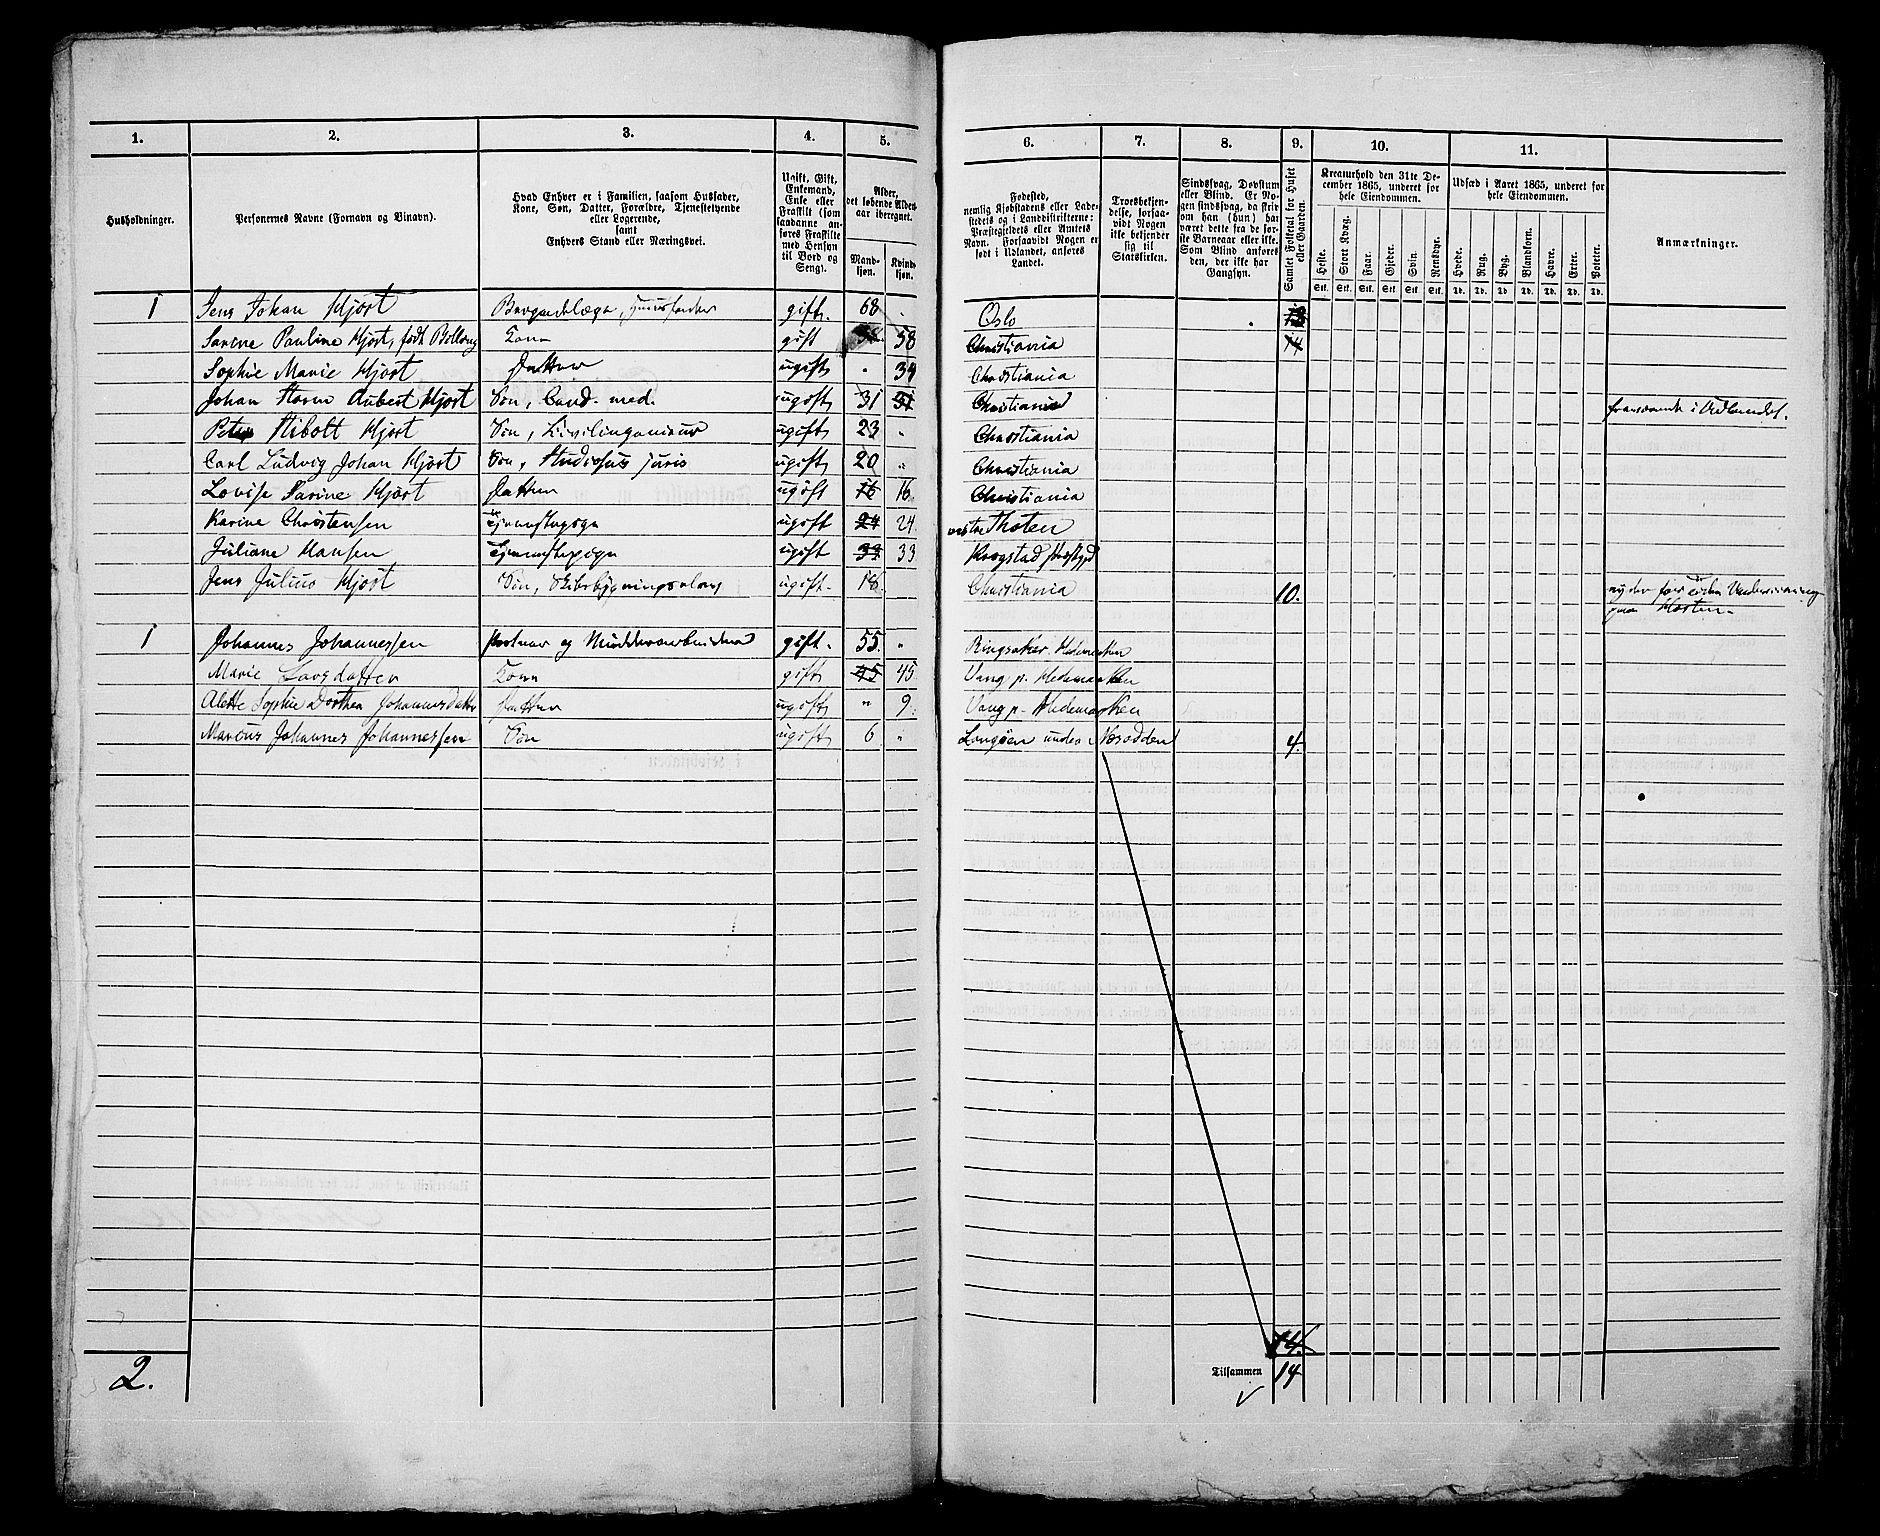 1. 2. 3. 4. 5. 6. 7. 8. 9. 10. 11.
Husholdninger.
Personernes Navne (Fornavn og Binavn).
Hvad Enhver er i Familien, saasom Husfader,
Kone, Søn, Datter, Forældre, Tjenestetyende
eller Logerende,
samt
Enhvers Stand eller Næringsvei.
Ugift, Gift,
Enkemand,
Enke eller
Fraskilt (som
saadanne an-
føres Fraskilte
med Hensyn
til Bord og
Seng).
Alder,
det løbende Alders-
aar iberegnet.
Mand-
kjøn.
Kvind-
kjøn.
Fødested,
nemlig Kjøbstadens eller Lade-
stedets og i Landdistrikterne:
Præstegjeldets eller Amtets
Navn. Forsaavidt Nogen er
født i Udlandet, anføres
Landet.
Troesbekjen-
delse, forsaa-
vidt Nogen
ikke bekjender
sig til
Statskirken.
Sindssvag, Døvstum
eller Blind. Er No-
gen sindssvag, da skri-
ves om han (hun) har
været dette fra de før-
ste Barneaar eller ikke.
Som Blind anføres
den, der ikke har
Gangsyn.
Samlet Folketal for Huset
eller Gaarden.
Kreaturhold den 31te De-
cember 1865, underet for
hele Eiendommen.
Heste. Stort Kvæg. Faar. Gjeder. Svin. Rensdyr.
Stk. Stk. Stk. Stk. Stk. Stk.
Udsæd i Aaret 1865, underet for
hele Eiendommen.
Hvede. Rug. Byg. Blandkorn. Havre. Erter. Poteter.
Td. Td. Td. Td. Td. Td. Td.
Anmærkninger.
1 Jens Johan Hjort Brigadelæge, Huusfader gift. 68 Oslo 13
Sarine Pauline Hjort, født Kone gift 58 58 Christiania 14
Sophie Marie Hjort Datter ugift " 34 Christiania
Johan Storm Aubert Hjort Søn, Cand. med. ugift 31 31 Christiania fraværende i Udlandet.
Peter Stibolt Hjort Søn, Civilingenieur ugift 23 " Christiania
Carl Ludvig Johan Hjort Søn, Studiosus juris ugift 20 " Christiania
Lovise Sarine Hjort Datter ugift 16 16 Christiania
Karine Christensen Tjenestepige ugift 24 24 vestre Thoten
Juliane Hansen Tjenestepige ugift 33 33 Krogstad Præstgjd
Jens Julius Hjort Søn, Skibsbygningselev ugift 18 Christiania 10. Undervisning
paa Horten.
1 Johannes Johannessen Portner og gift 55 " Ringsaker. Hedemarken
Marie Larsdatter Kone gift 45 45 Vang p. Hedemarken
Alette Sophie Dorthea Johannesdatter Datter ugift " 9 Vang p. Hedemarken
Marcus Johannes Johannessen Søn ugift 6 " Langøen under Næsodden 4.
14.
2. Tilsammen 14